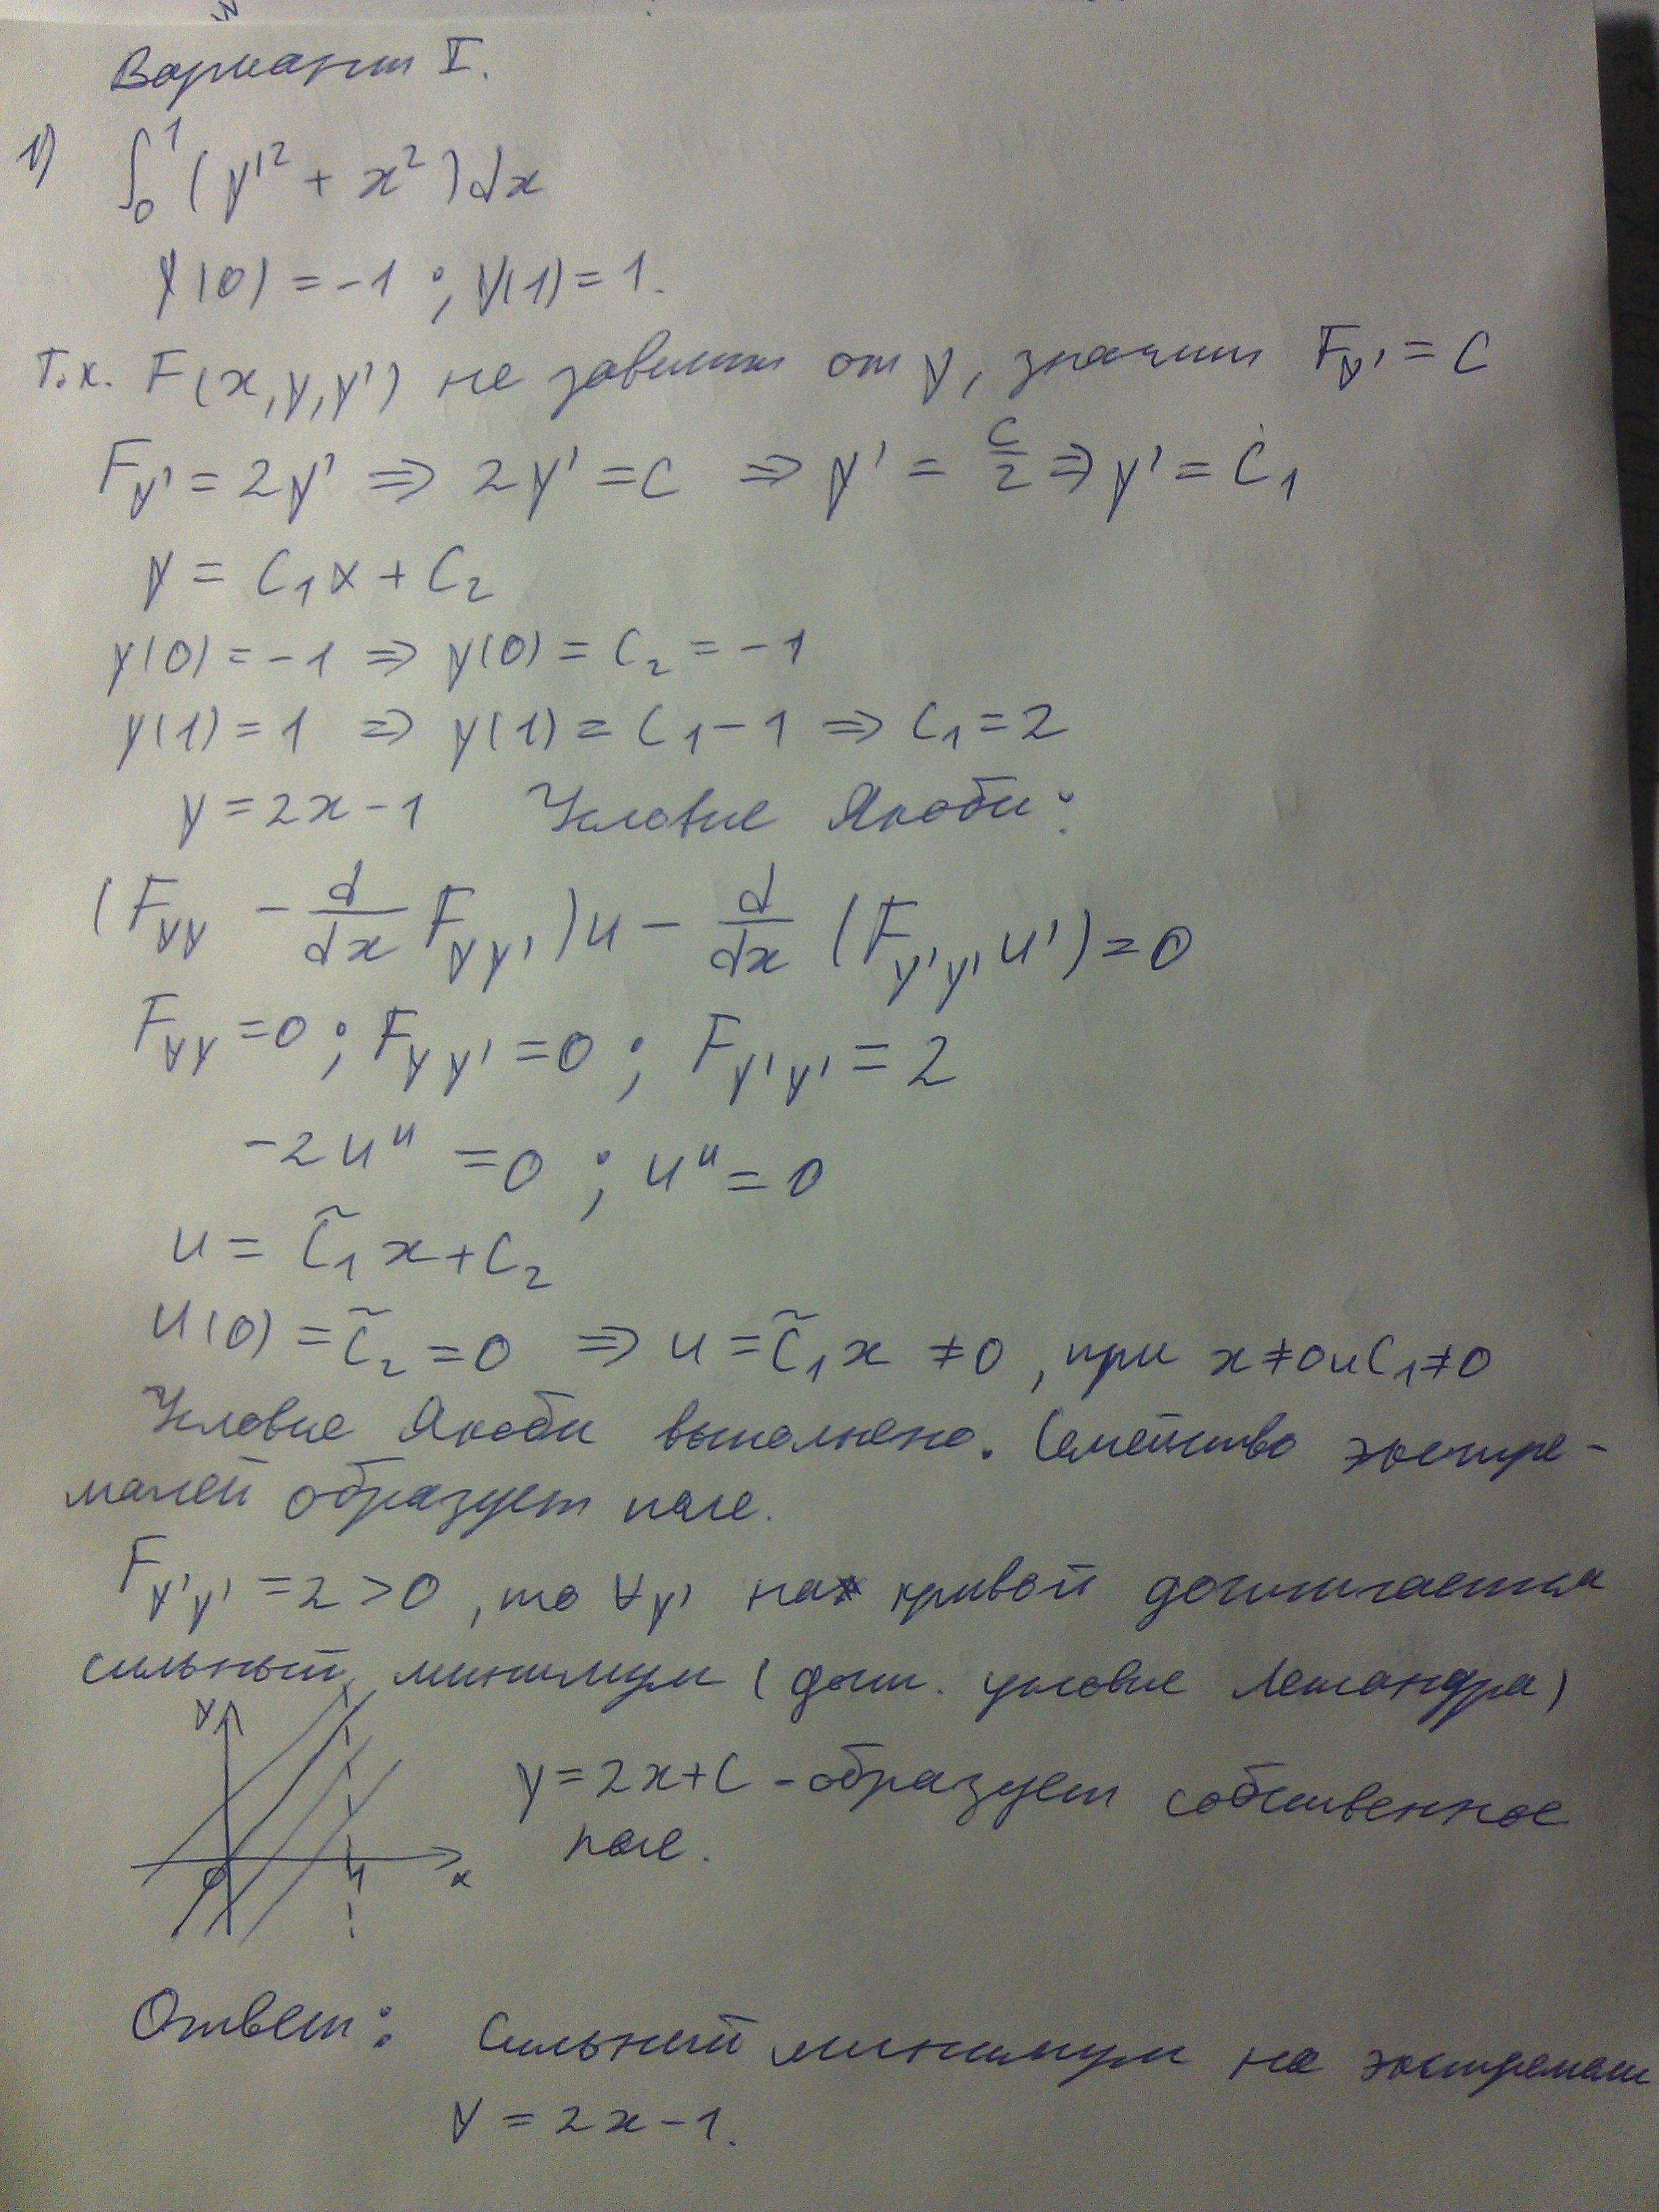 Вариант I.
1) ∫₀¹ (y'² + x²) dx
y(0) = -1 ; y(1) = 1.
Т.к. F(x, y, y') не зависит от y, значит F_y' = C
F_y' = 2y' ⇒ 2y' = C ⇒ y' = C/2 ⇒ y' = C₁
y = C₁x + C₂
y(0) = -1 ⇒ y(0) = C₂ = -1
y(1) = 1 ⇒ y(1) = C₁ - 1 ⇒ C₁ = 2
y = 2x - 1 Условие Якоби:
(F_yy - d/dx F_yy')u - d/dx (F_y'y' u') = 0
F_yy = 0 ; F_yy' = 0 ; F_y'y' = 2
-2u'' = 0 ; u'' = 0
u = C̃₁x + C₂
u(0) = C̃₂ = 0 ⇒ u = C̃₁x ≠ 0, при x ≠ 0 и C₁ ≠ 0
Условие Якоби выполнено. Семейство экстре-
малей образует поле.
F_y'y' = 2 > 0, то ∀y' на кривой достигается
сильный минимум (дост. условие Лежандра)
y
y = 2x + C - образует собственное
поле.
0 1 x
Ответ: Сильный минимум на экстремали
y = 2x - 1.